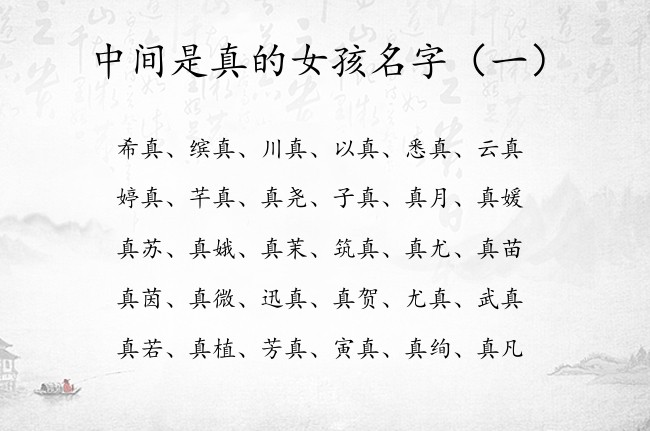 中间是真的女孩名字（一）
希真、缤真、川真、以真、悉真、云真
婷真、芊真、真尧、子真、真月、真媛
真苏、真娥、真茉、筑真、真尤、真苗
真茵、真微、迅真、真贺、尤真、武真
真若、真植、芳真、寅真、真绚、真凡